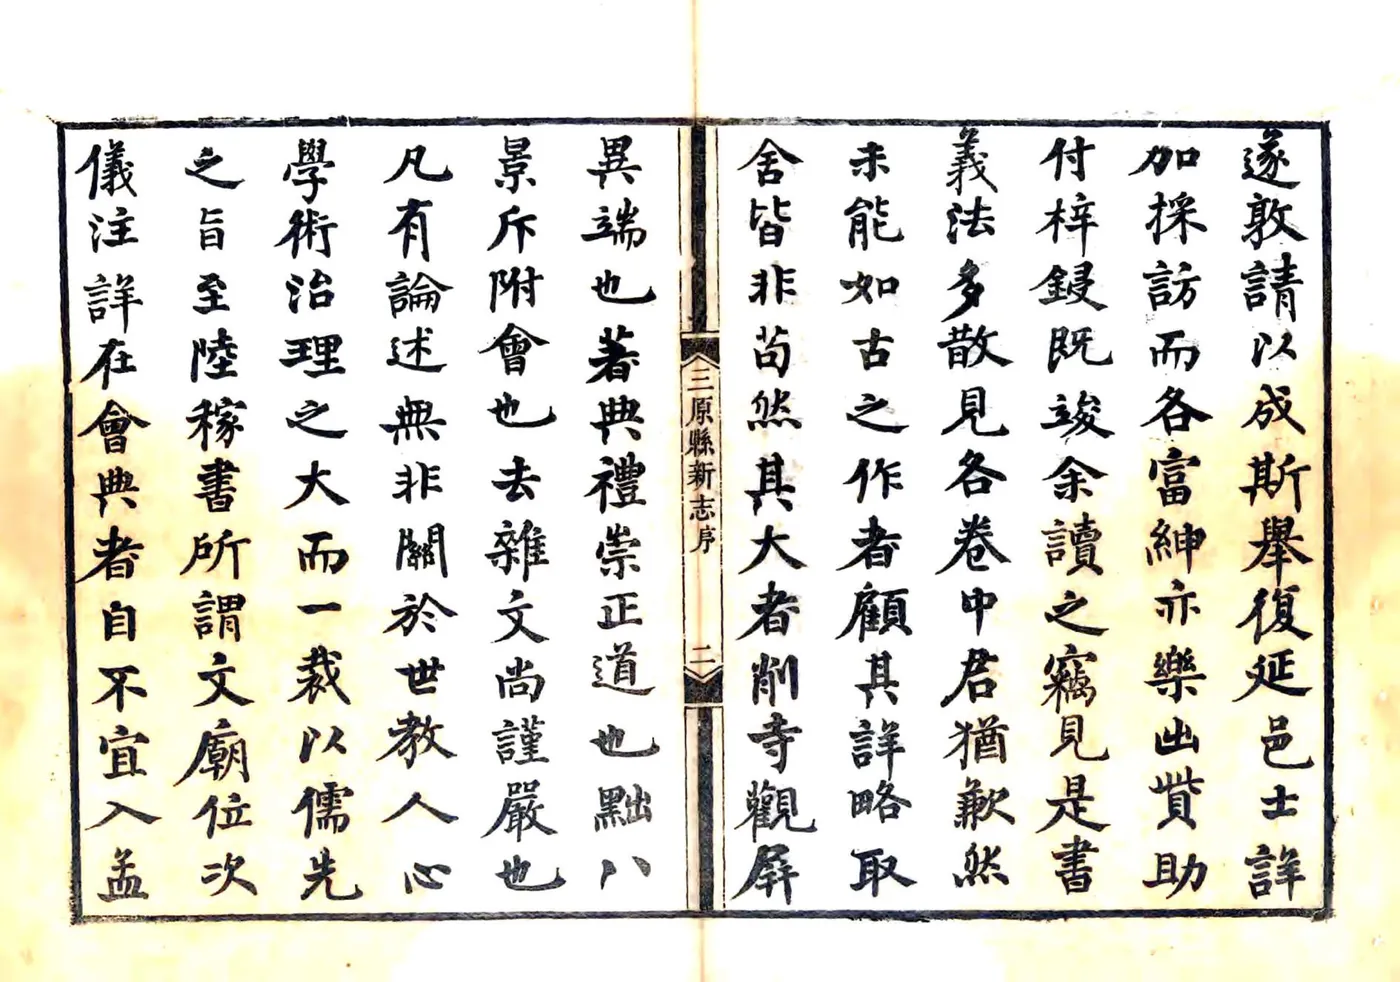 遂敦請以成斯舉復延邑士詳
加採訪而各富紳亦樂出貲助
付梓鋟既竣余讀之竊見是書
義法多散見各卷中君猶歉然
未能如古之作者顧其詳略取
舍皆非苟然其大者削寺觀屏
三原縣新志序 二
異端也著典禮崇正道也黜八
景斥附會也去雜文尚謹嚴也
凡有論述無非關於世教人心
學術治理之大而一裁以儒先
之旨至陸稼書所謂文廟位次
儀注詳在會典者自不宜入孟